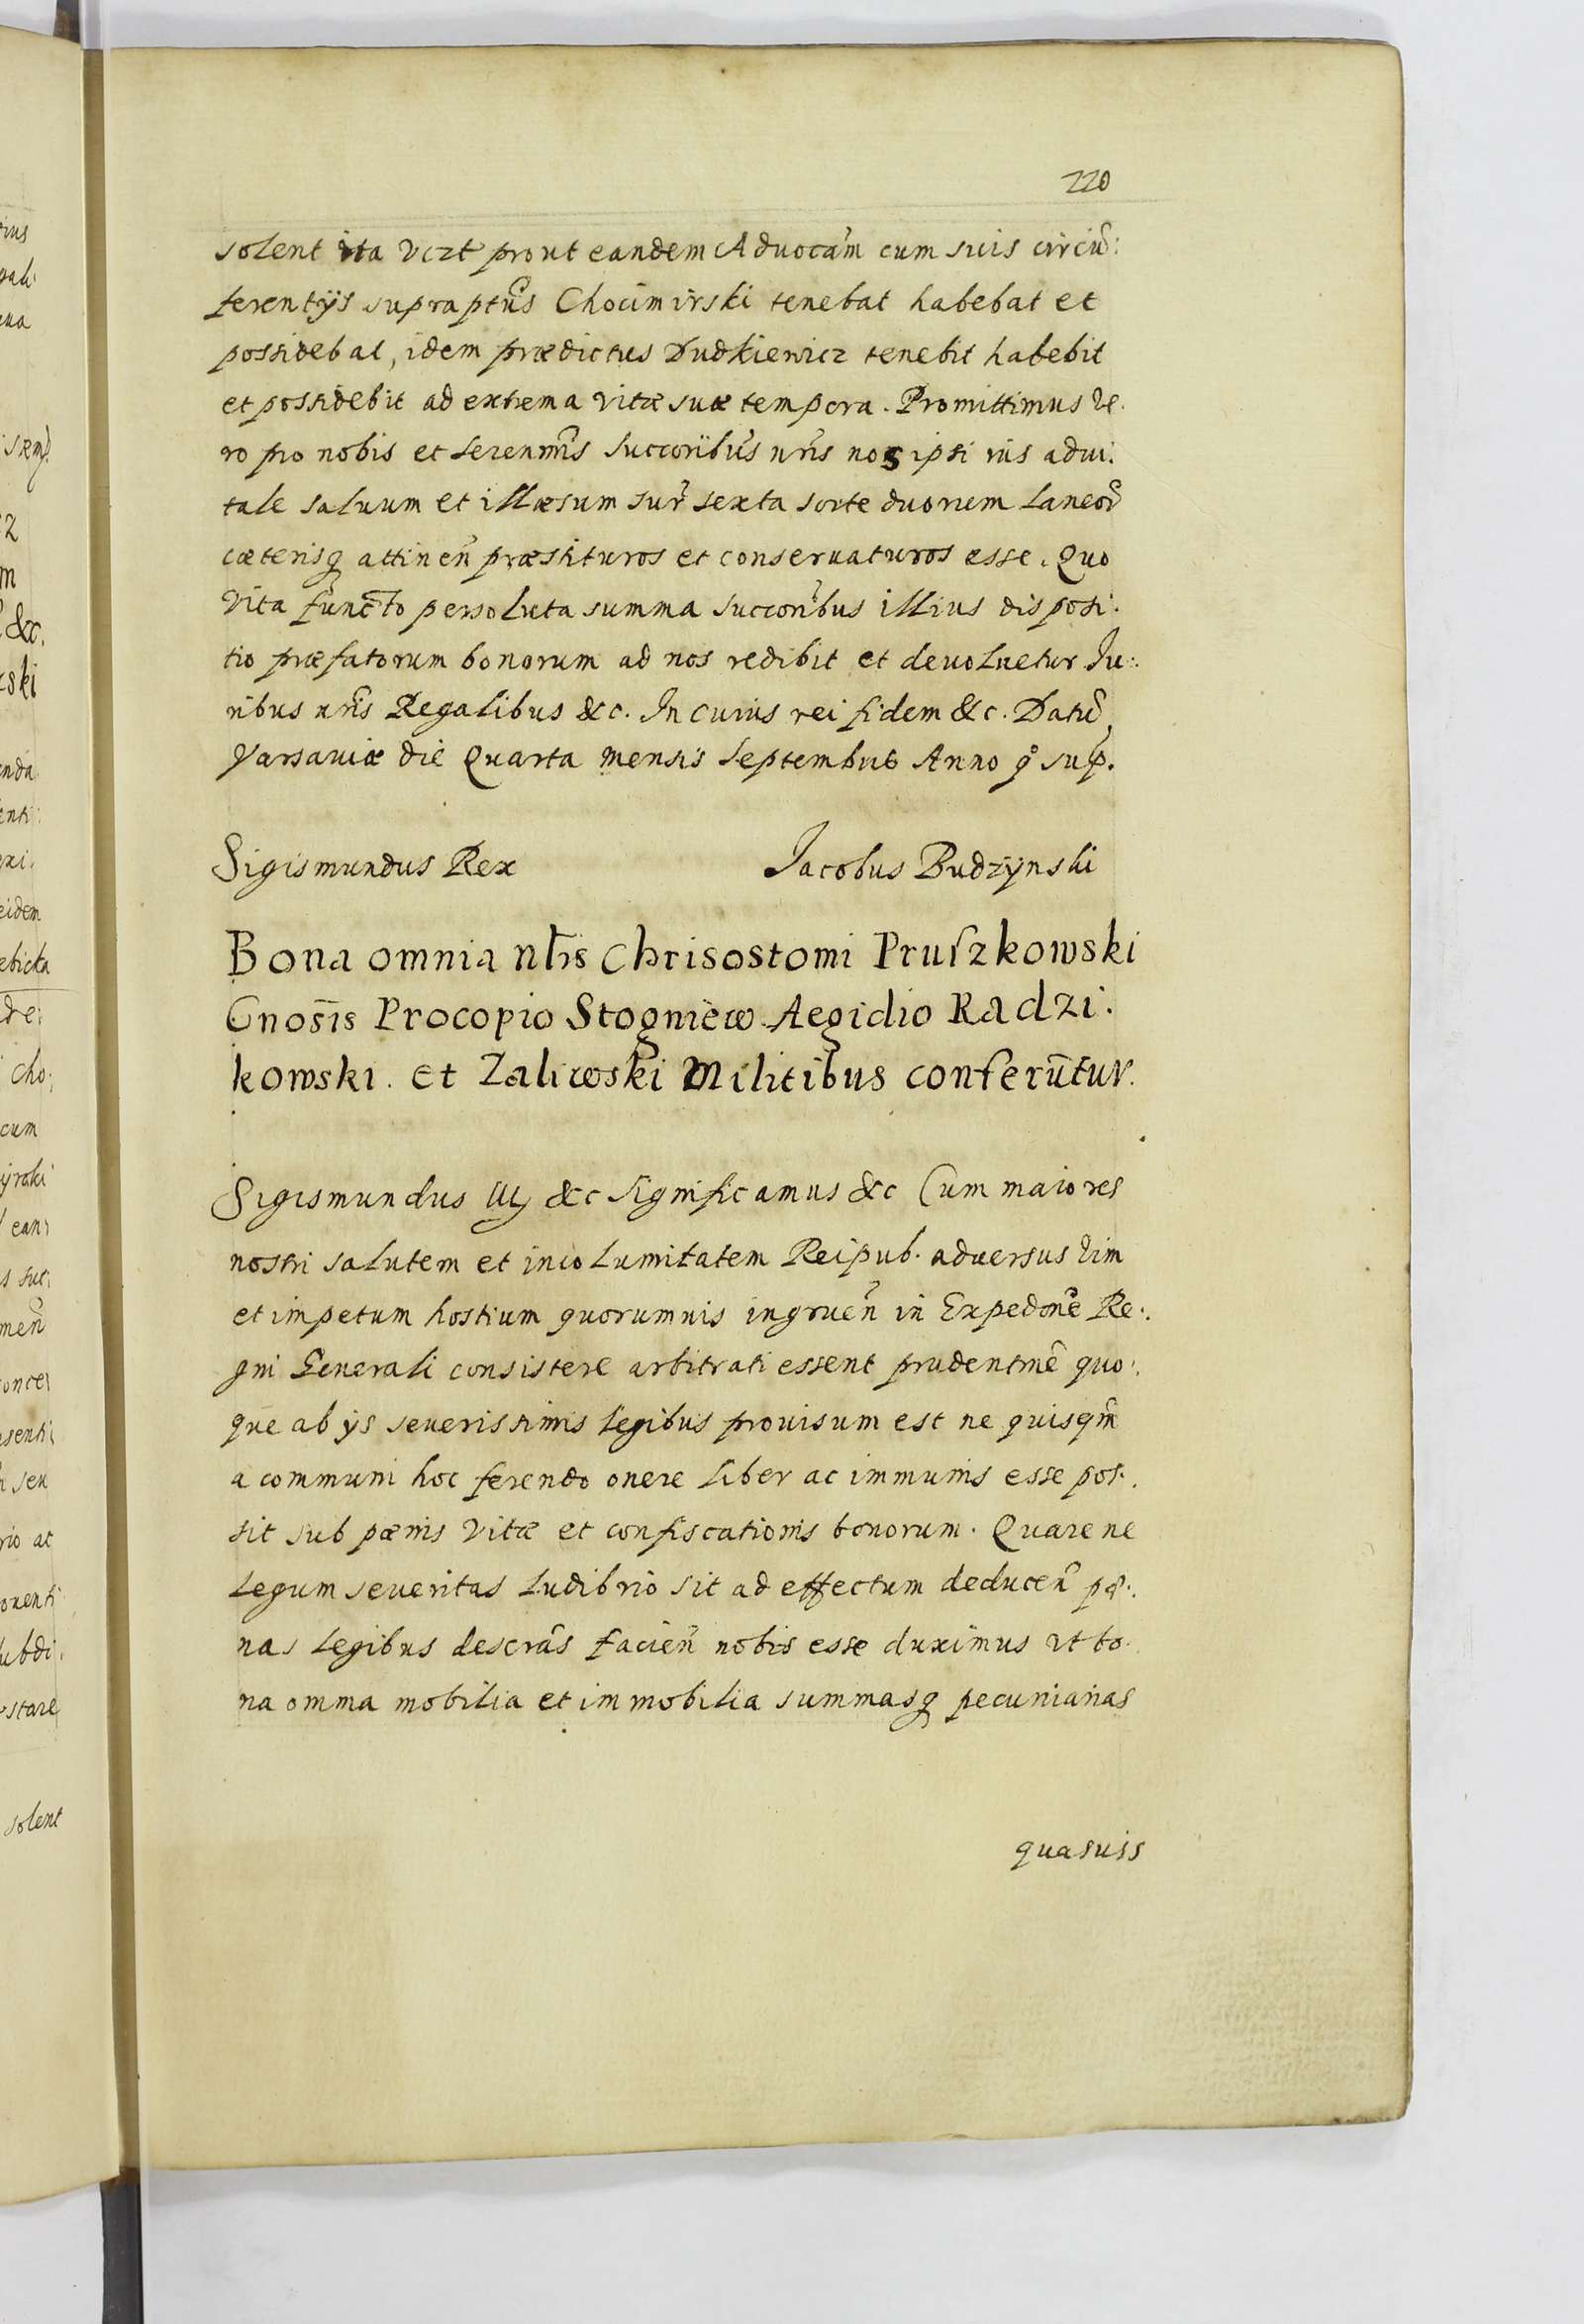 220
solent ita vczt prout eandem Aduocam̃ cum suis circũ:
ferentijs supraptũs Chocimirski tenebat habebat et
possidebat, idem prædictus Dudkiewicz tenebit habebit
et possidebit ad extrema vitæ suæ tempora. Promittimus ve.
ro pro nobis et serenm̃is succorib̃us nr̃is nos ipsi ius adui.
tale saluum et illæsum sup̃ sexta sorte duorum laneor̃
cæterisq attineñ præstituros et conseruaturos esse. Quo
vita functo persoluta summa succorĩbus illius disposi.
tio præfatorum bonorum ad nos redibit et deuoluetur Ju:
ribus nr̃is Regalibus &c. In cuius rei fidem &c. Datũ
Varsauiæ die Quarta mensis Septembris Anno q̊ sup̃.
Sigismundus Rex Jacobus Budzÿnski
Bona omnia nłis Chrisostomi Pruszkowski
Gnosĩs Procopio Stogniew Aegidio Radzi.
kowski. et Zaliwski Militibus conferũtur.
Sigismundus IIIj &c Significamus &c Cum maiores
nostri salutem et incolumitatem Reipub. aduersus vim
et impetum hostium quorumuis ingrueñ in Expedonẽ Re:
gni Generali consistere arbitrati essent prudentmẽ quo:
que ab ijs seuerissimis legibus prouisum est ne quisqm̃
a communi hoc ferendo onere liber ac immunis esse pos.
sit sub pœnis vitæ et confiscationis bonorum. Quare ne
legum seueritas ludibrio sit ad effectum deduceñ pœ:
nas legibus descrãs facieñ nobis esse duximus vt bo.
na omnia mobilia et immobilia summasq pecuniarias
quasuis